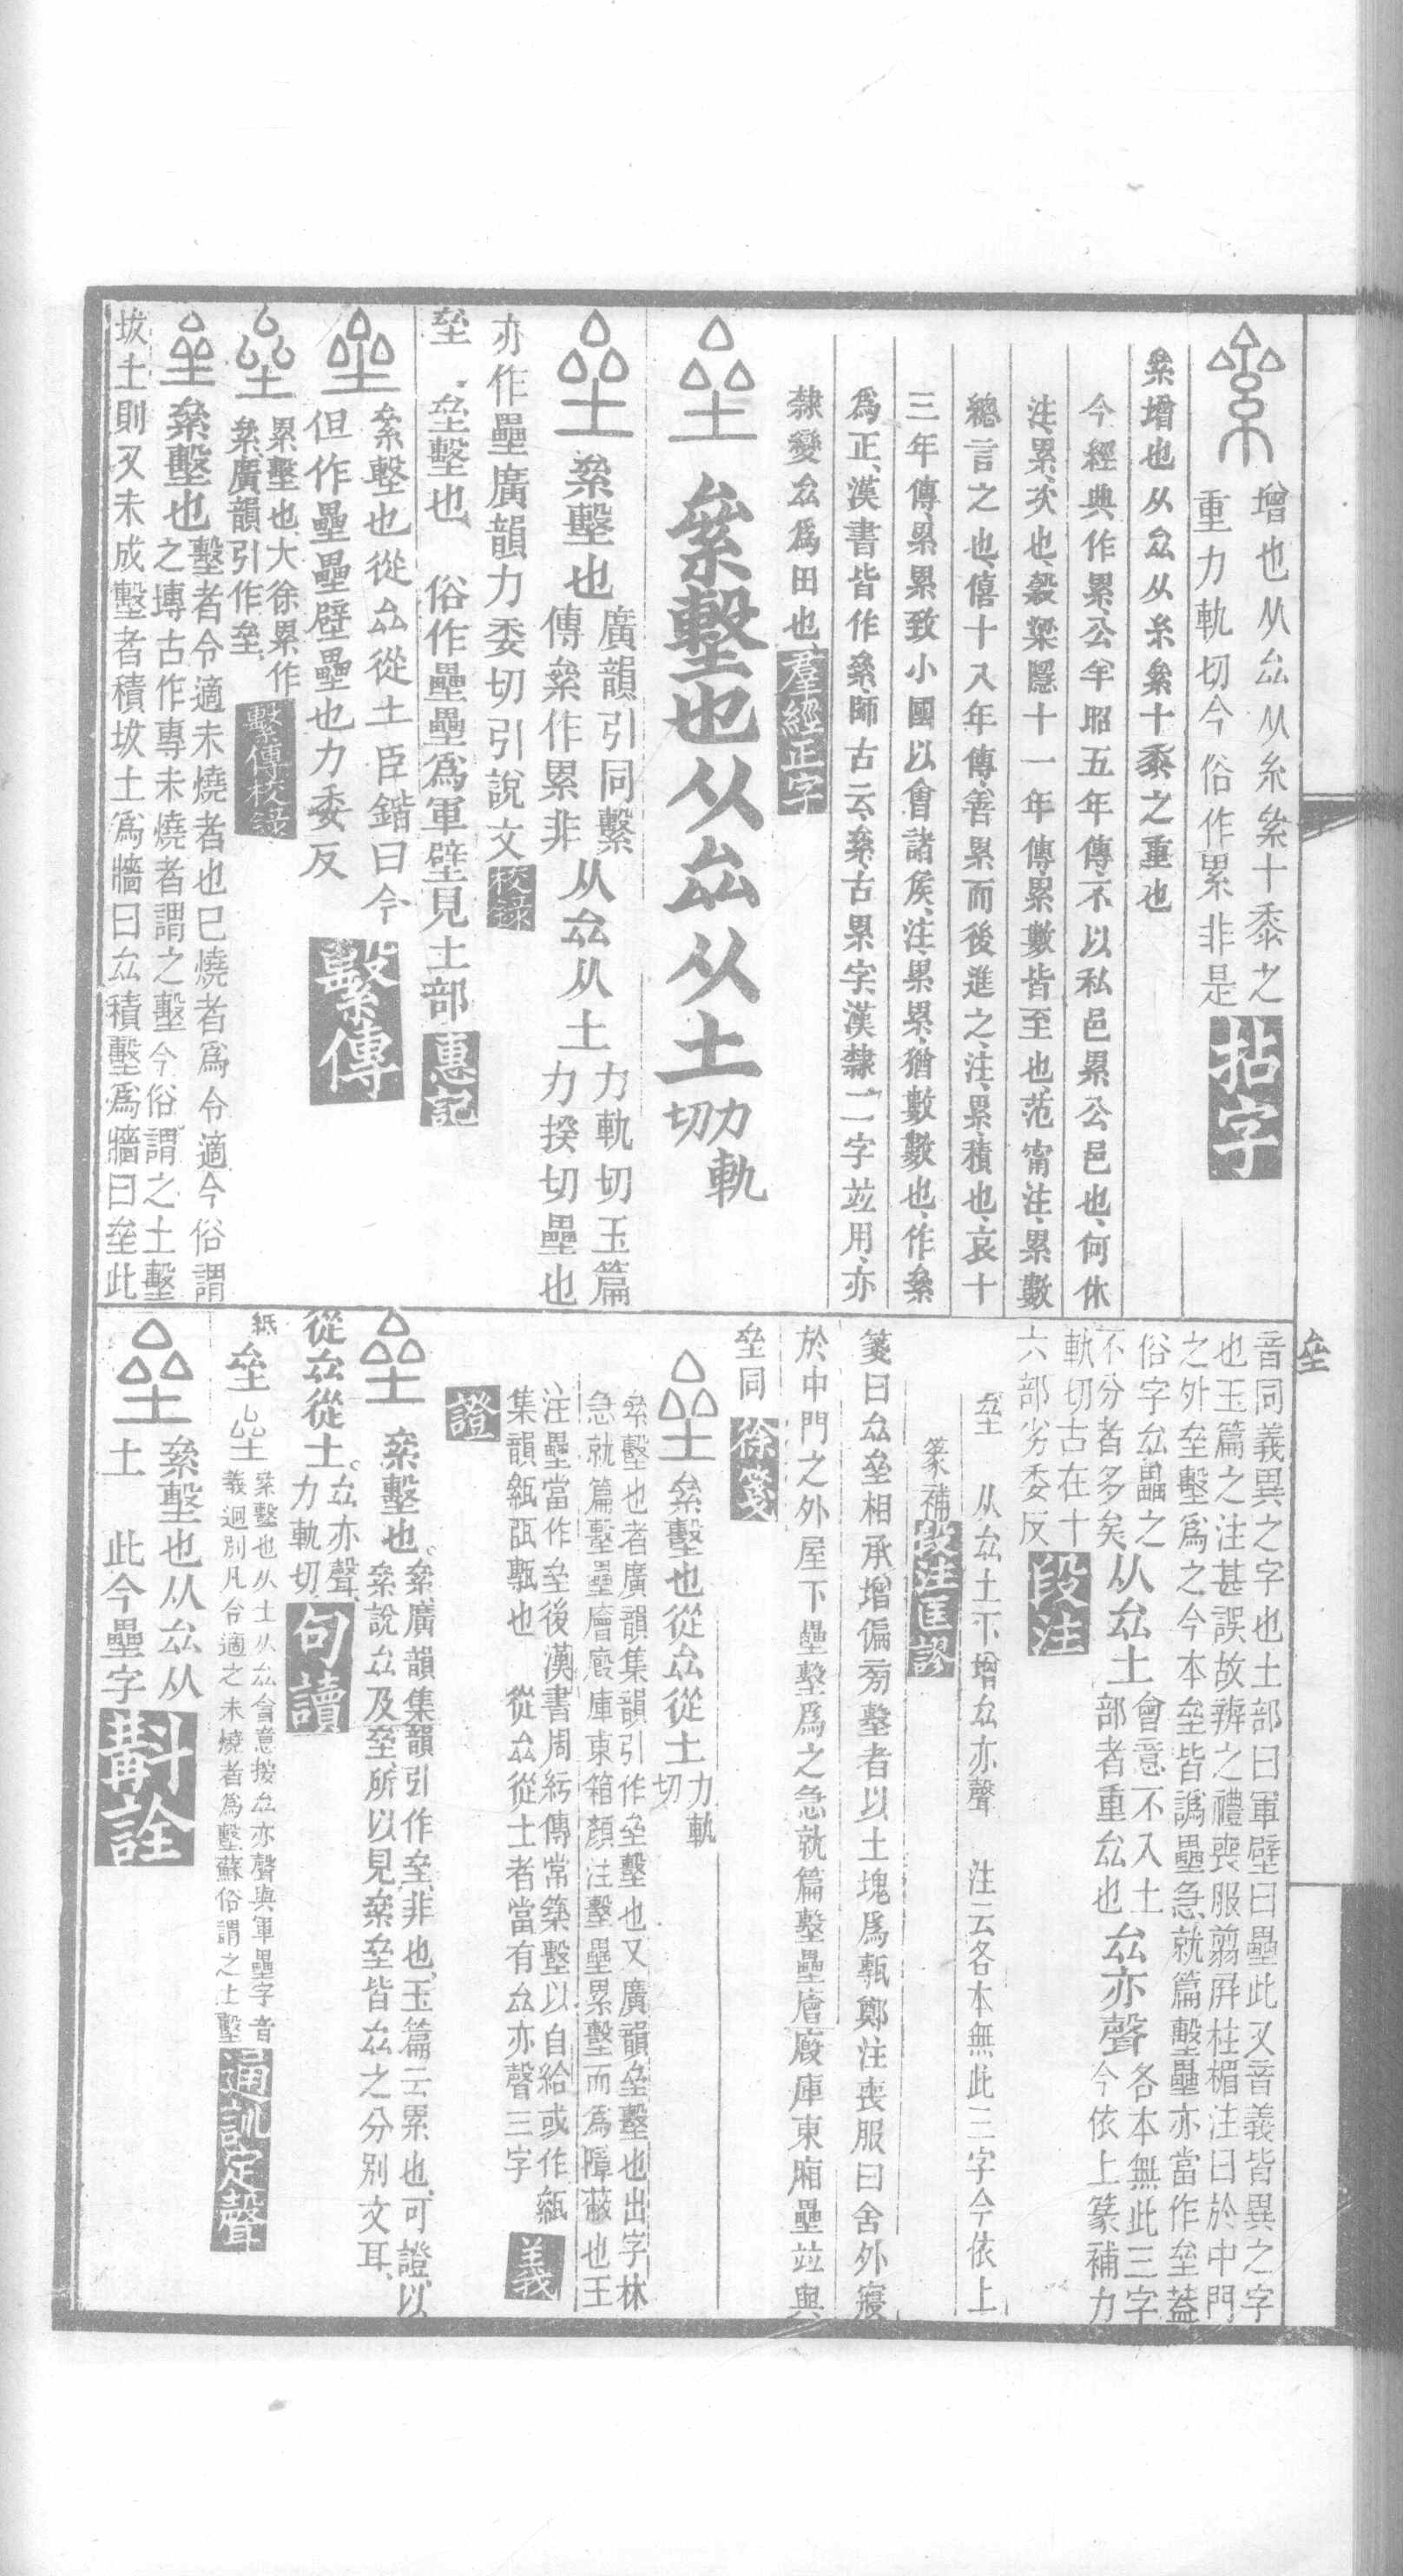 增也从厽从糸絫十黍之
重力軌切今俗作累非是
拈字
絫增也从厽从糸絫十黍之重也
今經典作累公羊昭五年傳不以私邑累公邑也何休
注累次也穀梁隱十一年傳累數皆至也范甯注累數
總言之也僖十八年傳善累而後進之注累積也哀十
三年傳累累致小國以會諸侯注累累猶數數也作絫
爲正漢書皆作絫師古云絫古累字漢隸二字竝用亦
隸變厽爲田也
羣經正字
絫墼也从厽从土
力軌
切
絫墼也
廣韻引同繫
傳絫作累非
从厽从土
力軌切玉篇
力揆切壘也
亦作壘廣韻力委切引說文
校錄
垒 垒墼也 俗作壘壘爲軍壁見土部
惠記
絫墼也從厽從土臣鍇曰今
但作壘壘壁壘也力委反
繫傳
累墼也大徐累作
絫廣韻引作垒
繫傳校錄
絫墼也
墼者令適未燒者也已燒者爲令適今俗謂
之塼古作專未燒者謂之墼今俗謂之土墼
坺土則又未成墼者積坺土爲牆曰厽積墼爲牆曰垒此
垒
音同義異之字也土部曰軍壁曰壘此又音義皆異之字
也玉篇之注甚誤故辨之禮喪服翦屛柱楣注曰於中門
之外垒墼爲之今本垒皆譌壘急就篇墼壘亦當作垒葢
俗字厽畾之
不分者多矣
从厽土
會意不入土
部者重厽也
厽亦聲
各本無此三字
今依上篆補力
軌切古在十
六部劣委反
段注
垒 从厽土下增厽亦聲 注云各本無此三字今依上
篆補
段注匡謬
箋曰厽垒相承增偏旁墼者以土塊爲甎鄭注喪服曰舍外寢
於中門之外屋下壘墼爲之急就篇墼壘廥廄庫東廂壘竝與
垒同
徐箋
絫墼也從厽從土
力軌
切
絫墼也者廣韻集韻引作垒墼也又廣韻垒墼也出字林
急就篇墼壘廥廄庫東箱顏注墼壘累墼而爲障蔽也王
注壘當作垒後漢書周紆傳常築墼以自給或作瓵
集韻瓵㼚甎也 從厽從土者當有厽亦聲三字
義
證
絫墼也
絫廣韻集韻引作垒非也玉篇云累也可證以
絫說厽及垒所以見絫垒皆厽之分別文耳
從厽從土
厽亦聲
力軌切
句讀
紙
垒
絫墼也从土从厽會意按厽亦聲與軍壘字音
義迥別凡令適之未燒者爲墼蘇俗謂之土墼
通訓定聲
絫墼也从厽从
土 此今壘字
斠詮